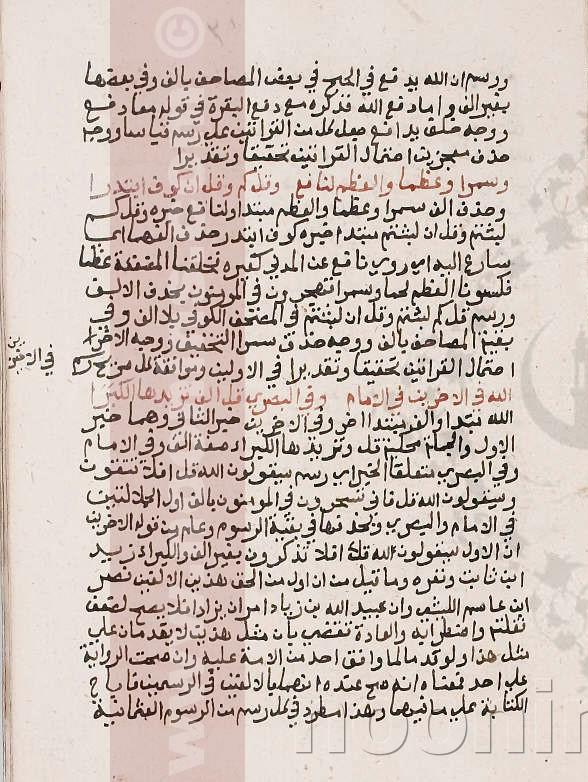 ورسم ان الله يدفع في الحج في بعض المصاحف بالف وفي بعضها
بغير الف واما دفع الله فذكره مع دفع البقرة في قوله معا دفع
ووجه خلف يدافع جعل كل من القراتين على رسم قياسا ووجه
حذف احتمال القراتين تحقيقا وتقديرا
وسمرا وعظما والعظم لنافع وقل كم وقل ان كوف ابتدرا
وحذف الف سمرا وعظما والعظم مبتدا ولنافع خبره وقل كم
لبثتم وقل ان لبثتم مبتدا خبره كوف ابتدر حذف الفهما اي
سارع اليه اي روى نافع عن المدني كغيره فخلقنا المضغة عظما
فكسونا العظم لحما وسمرا تهجرون في المومنون بحذف الالف
ورسم قل كم لبثتم وقل ان لبثتم في المصحف الكوفي بلا الف وفي
بقية المصاحف بالف ووجه حذف سمرا التخفيف ووجه الاخر
احتمال القراتين تحقيقا وتقديرا في الاولين وموافقة كل
الله في الاخرين في الامام وفي البصري قل الف يزيدها الكبرا
الله مبتدا والف مبتدا اخر وفي الاخرين خبر الثاني وهما خبر
الاول والجملة محكية قل ويزيدها الكبراء صفة الف وفي الامام
وفي البصري متعلقا الخبر اي رسم سيقولون الله قل افلا تتقون
وسيقولون الله قل فاني تسحرون في المومنون بالف اول الجلالتين
في الامام والبصري وبحذفها في بقية الرسوم وعلم من قوله الاخرين
ان الاول سيقولون لله قل افلا تذكرون بغير الف والكبراء زيد
ابن ثابت ونفره وما قيل من ان اول من الحق هذين الالفين نصر
ابن عاصم الليثي وان عبيد الله بن زياد امر ان يزاد فلا يصح لضعف
نقلته واضطرابه والعادة تقتضي بان مثل هذين لا يقدمان على
مثل هذا ولو قدما لما وافق احد من الامة عليه وان صحت الرواية
على احد معناه انه صح عنده انهما بالالفين في الرسمين
الكتابة على ما فيهما وهذا مطرد في كل رسم من الرسوم العثمانية